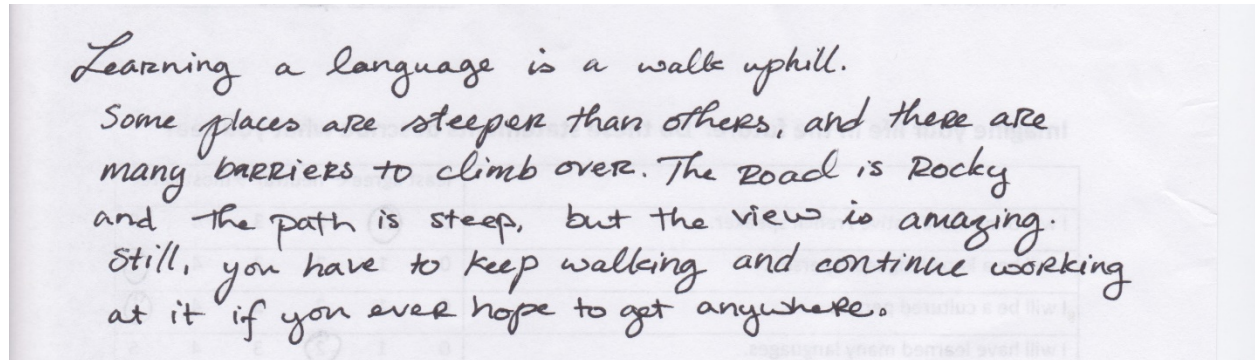 Learning a language is a walk uphill.
Some places are steeper than others, and there are
many barriers to climb over. The road is Rocky
and the path is steep, but the view is amazing.
Still, you have to keep walking and continue working
at it if you ever hope to get anywhere.